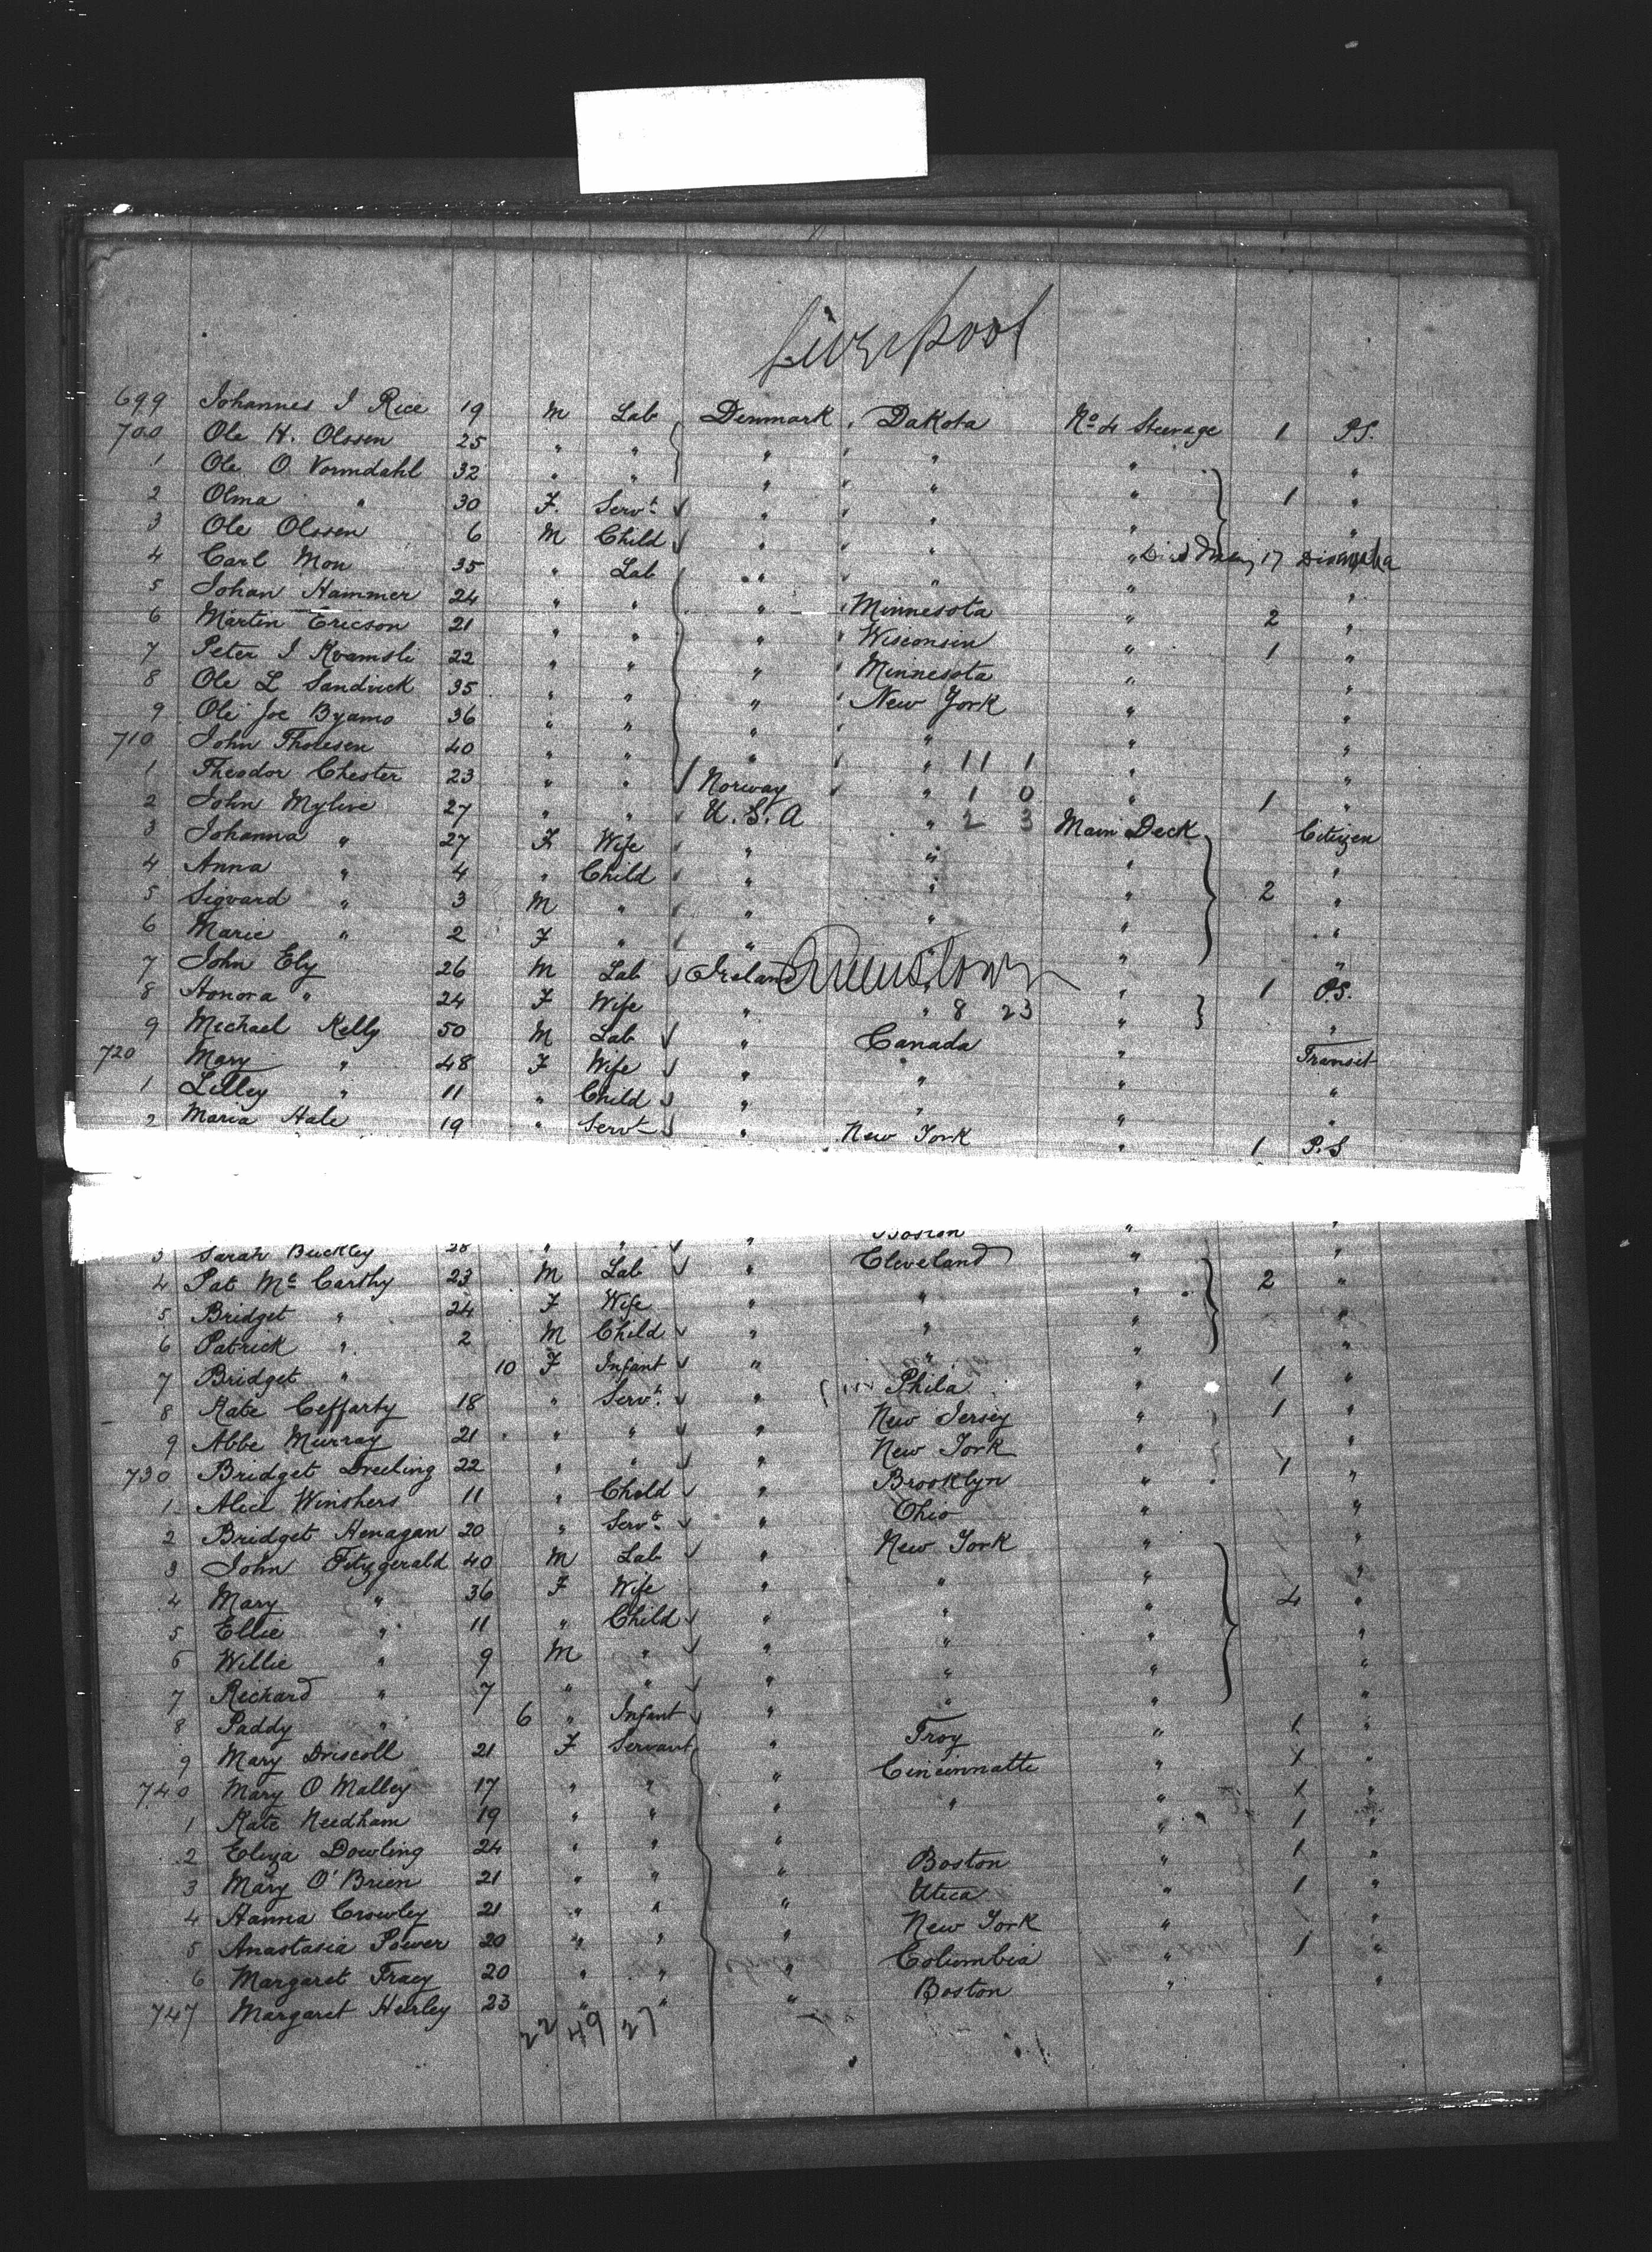 Liverpool
699 Johannes J Rice 19 M Lab Denmark Dakota No 4 Steerage 1 P.S.
700 Ole H. Olssen 25 " " " " " "
1 Ole O. Vormdahl 32 " " " " " 1 "
2 Olma " 30 F. Servt " " " "
3 Ole Olssen 6 M Child " " " Died May 17
4 Carl Mon 35 " Lab " " " "
5 Johan Hammer 24 " " " Minnesota " 2 "
6 Martin Ericson 21 " " " Wisconsin " 1 "
7 Peter J Kvamsli 22 " " " Minnesota " "
8 Ole L Sandvick 35 " " " New York " "
9 Ole Joe Byamo 36 " " " " " "
710 John Thoresen 40 " " " " 11 1 " "
1 Theodor Chester 23 " " Norway " 1 0 " 1 "
2 John Mylive 27 " " U.S.A " 2 3 Main Deck Citizen
3 Johanna " 27 F Wife " " " "
4 Anna " 4 " Child " " " 2 "
5 Sigvard " 3 M " " " " "
6 Marie " 2 F " " " " "
Queenstown
7 John Ely 26 M Lab Ireland " " 1 P.S.
8 Honora " 24 F Wife " " 8 23 " "
9 Michael Kelly 50 M Lab " Canada " Transit
720 Mary " 48 F Wife " " " "
1 Lilley " 11 " Child " " " "
2 Maria Hale 19 " Servt " New York " 1 P.S
3 Sarah Buckley 28 " " " Boston " "
4 Pat Mc Carthy 23 M Lab " Cleveland " 2 "
5 Bridget " 24 F Wife " " " "
6 Patrick " 2 M Child " " " "
7 Bridget " 10 F Infant " " " "
8 Kate Ceffarty 18 " Servt " Phila " 1 "
9 Abbe Murray 21 " " " New Jersey " 1 "
730 Bridget Dreeling 22 " " " New York " "
1 Alice Winshers 11 " Child " Brooklyn " 1 "
2 Bridget Henagan 20 " Servt " Ohio " "
3 John Fitzgerald 40 M Lab " New York " "
4 Mary " 36 F Wife " " " "
5 Ellie " 11 " Child " " " 4 "
6 Willie " 9 M " " " " "
7 Richard " 7 " " " " " "
8 Paddy " 6 " Infant " " " "
9 Mary Driscoll 21 F Servant " Troy " 1 "
740 Mary O Malley 17 " " " Cincinnatte " 1 "
1 Kate Needham 19 " " " " " 1 "
2 Eliza Dowling 24 " " " " 1 "
3 Mary O'Brien 21 " " " Boston " 1 "
4 Hanna Crowley 21 " " " Utica " 1 "
5 Anastasia Power 20 " " " New York " "
6 Margaret Tracy 20 " " " Columbia " 1 "
747 Margaret Herley 23 " " " Boston " "
22 49 27